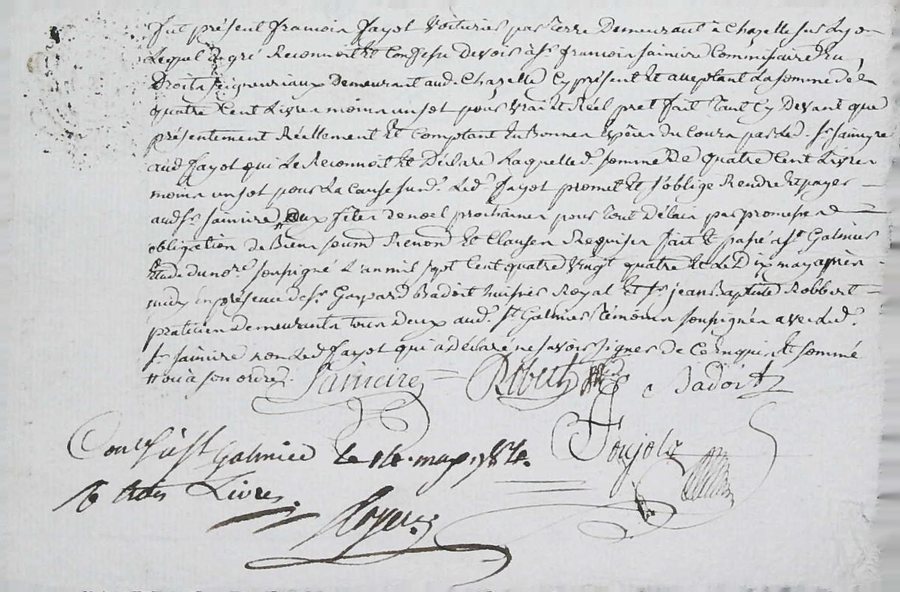 fut présent francois fayot voiturier par terre Demeurant a Chazelle sur Lyon
Lequel de gré Reconnoit et Confesse devoir a sr. francois saimire Commissaire En
Droits seigneuriaux Demeurant aud. Chazelle Cy présent et acceptant La somme de
quatre Cent Livres moins un sol pour vrai et Réel pret fait tant Cy Devant que
présentement Réellement et Comptant En Bonnes Espèces du Cours par Led. sr. saimire
aud fayot qui Le Reconnoit et Déclare Laquelle d. somme De quatre Cent Livres
moins un sol pour La Cause susd. Led. fayot promet et s'oblige Rendre et payer
aud sr. saimire aux fêtes de noel prochaines pour tout Délai par promesse
obligation de Biens soumd Renond et Clauses Requises fait et passé a st. Galmier
Etude du nore. soussigné L'an mil sept Cent quatre vingt quatre et Le Dix may après
midy En présence de sr. Gaspard Badoit huissier Royal et sr. jean Baptiste Robbert
praticien Demeurants tous Deux aud. st. Galmier témoins soussignés avec Led.
sr. saimire non Led fayot qui a déclaré ne savoir signer de Ce Enquis et sommé
Saimire Robert Badoit
Conle. à st. Galmier le may 1784
Livres
Poujol
Royer